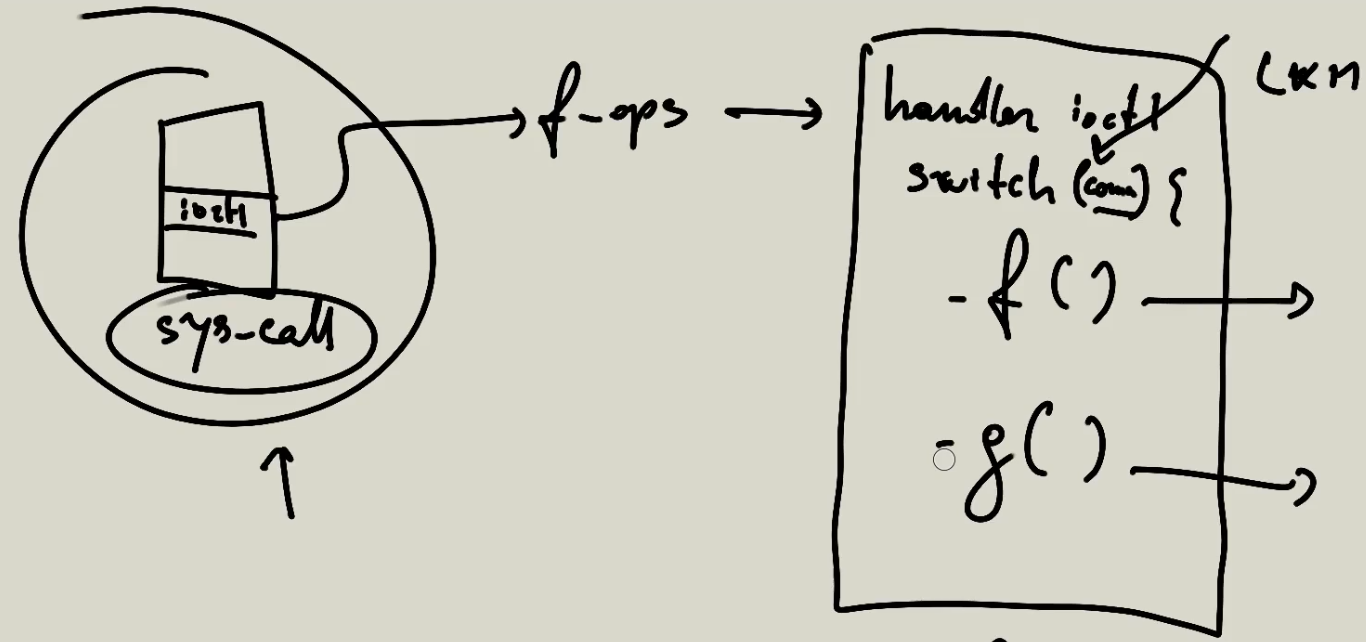 ioctl
sys-call
f-ops
handler ioctl
switch (com) {
- f ( )
- g ( )
LKM